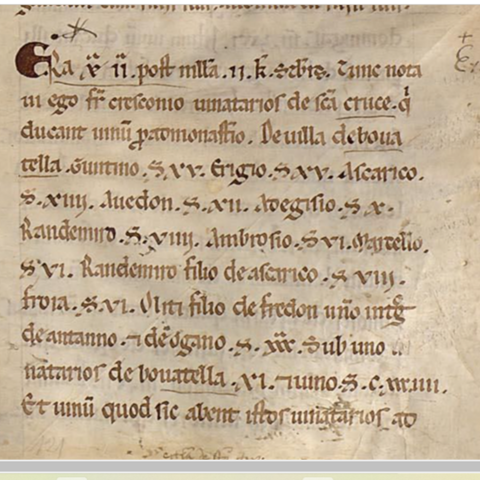 Era x̄ ii. post mllā. ii. k̄. Setbrīs. Tunc nota
ui ego fr̄ cresconio uinatarios de sc̄a cruce. q̄
ducant uinū ꝓ ad monast̄io. De uilla de boua
tella. Guntino. S. xv. Erigio. S. xv. Ascarico.
S. xiiii. Auedon. S. xii. Adegisio. S. x.
Randemiro. S. viiii. Ambrosio. S vi. Martello.
S vi. Randemiro filio de ascarico. S. viii.
froia. S. vi. Oliti filio de fredon uno intḡ
de antanno. ⁊ de ōgano. S. xxx. Sub uno ui
natarios de bouatella. xi. ⁊ uino. S. c. xxiiii.
Et uinū quod sic abent istos uinatarios ad